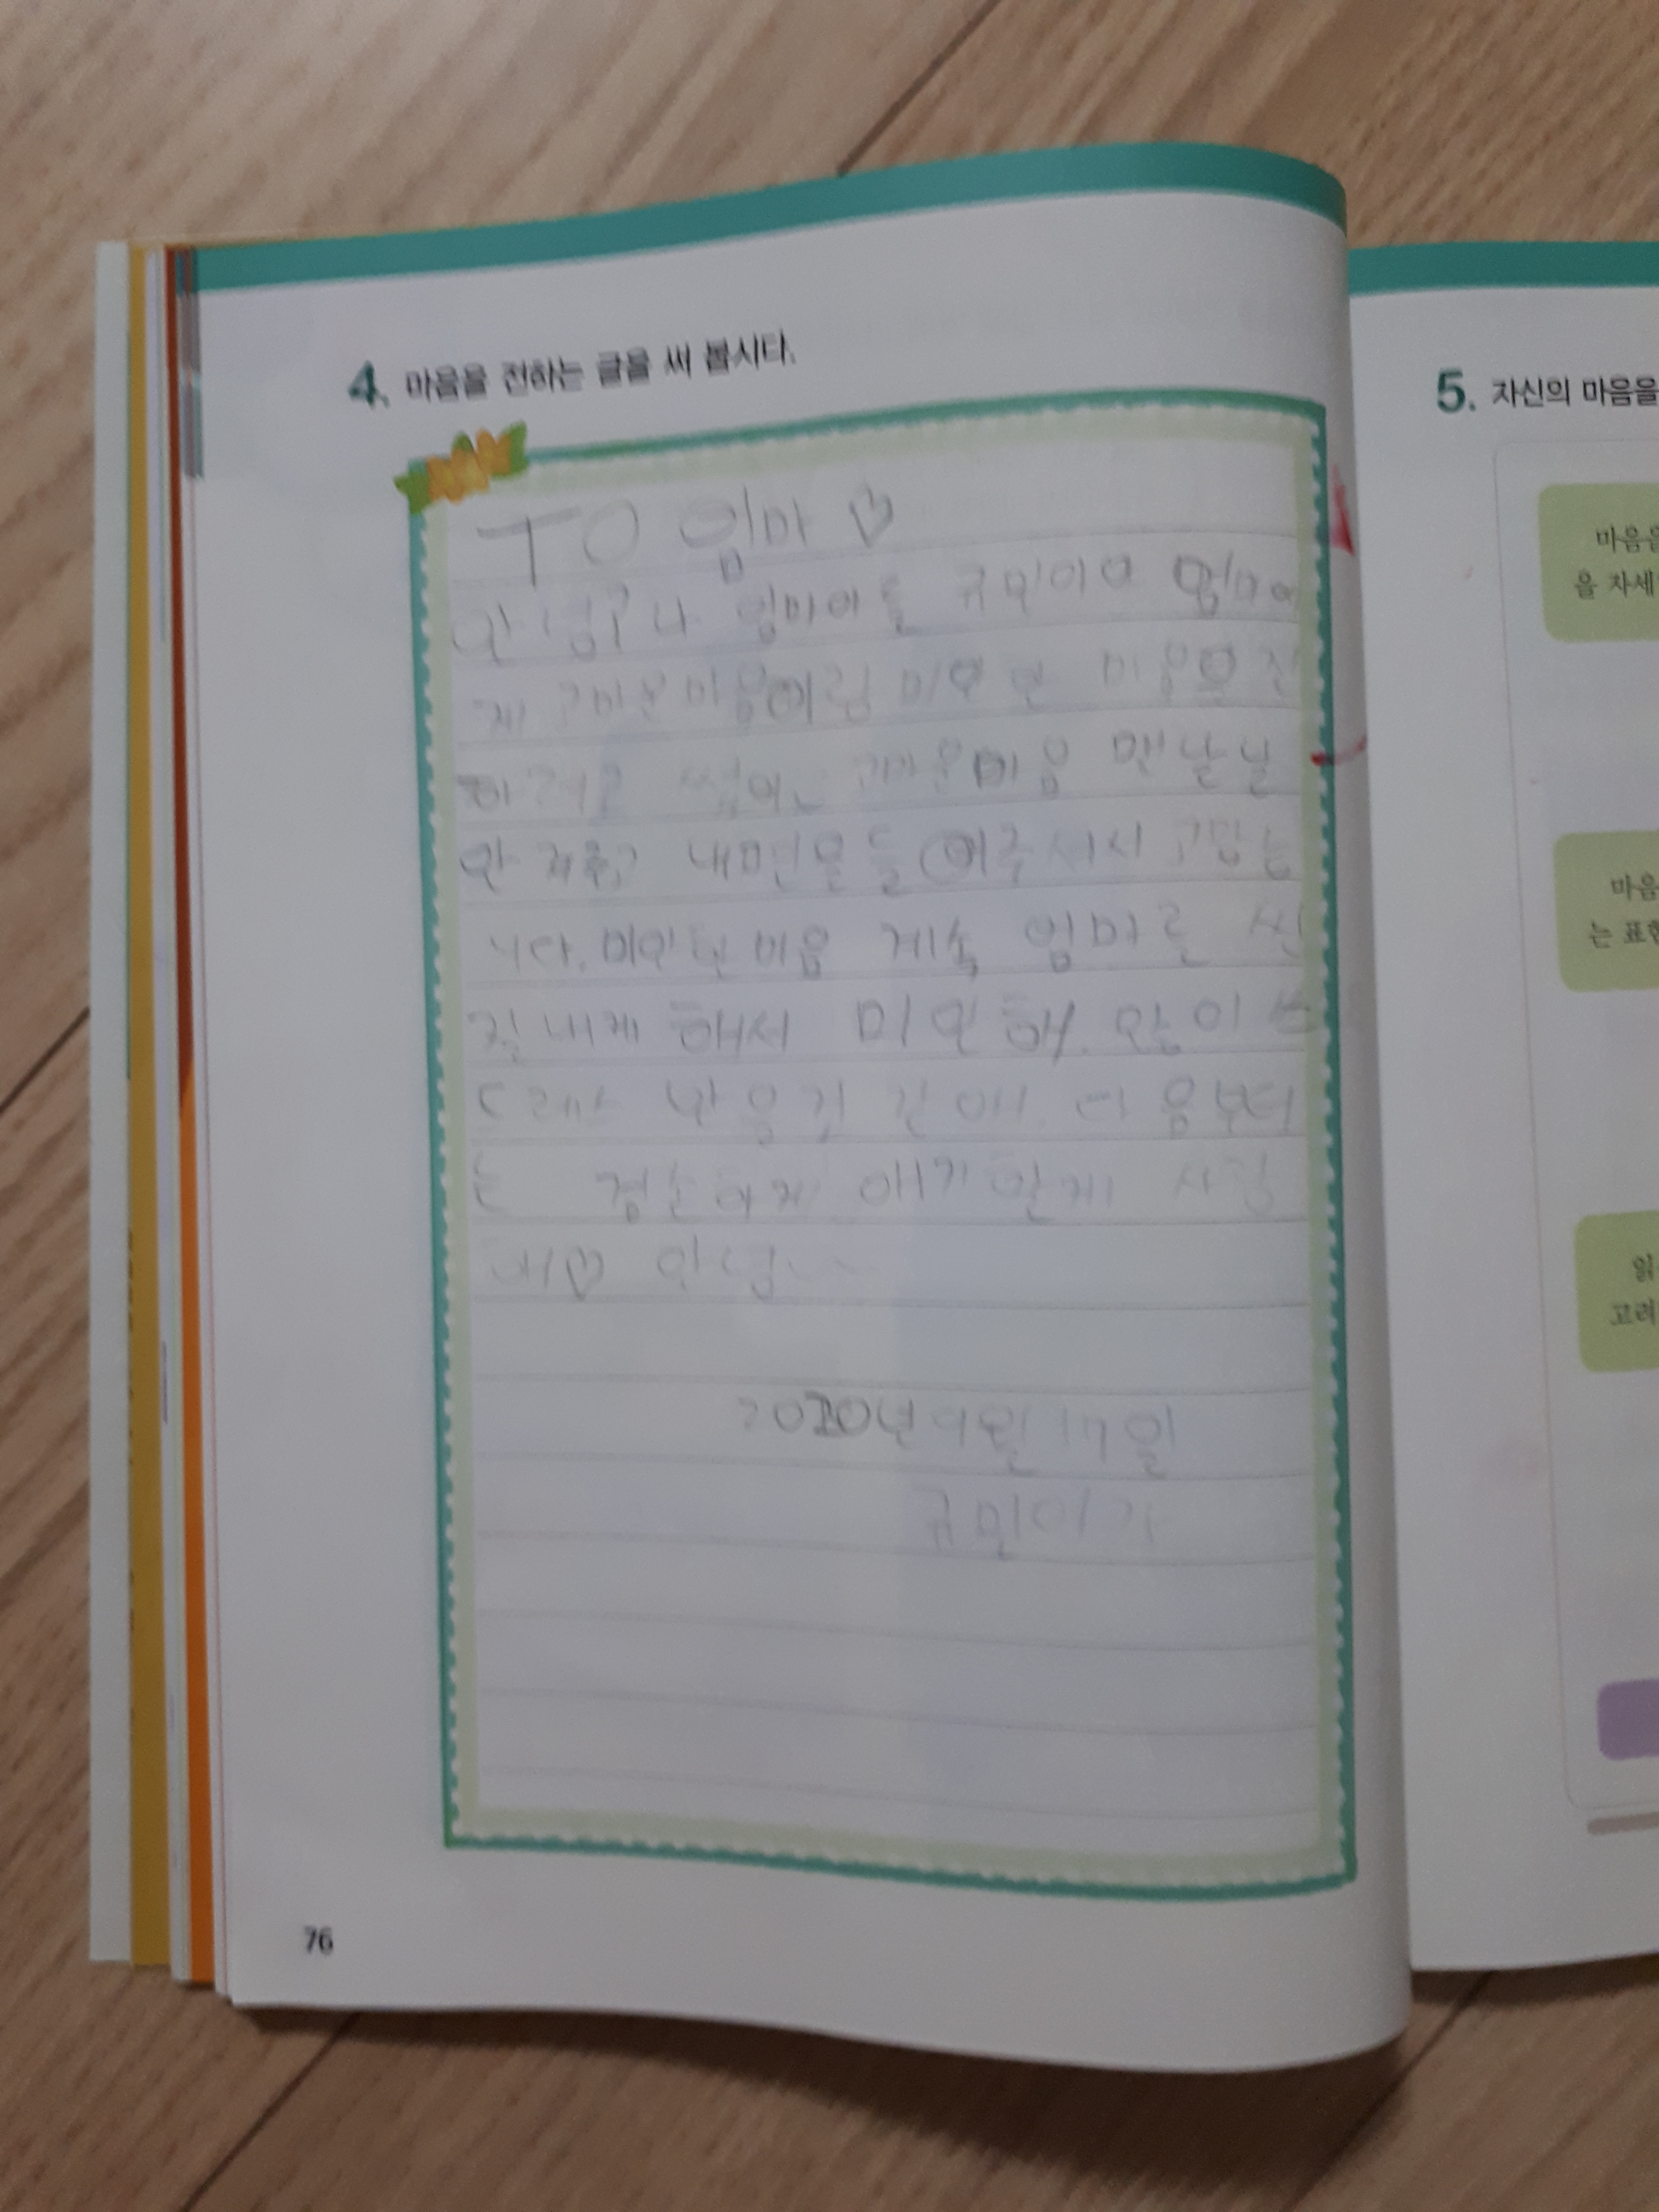 4. 마음을 전하는 글을 써 봅시다.
TO 엄마 ♡
안녕? 나 엄마아들 규민이야 엄마에
게 고마운마음이랑 미안한 마음을 전
하려고 썼어~ 고마운마음 맨날날
안 내면을들어주셔서 고맙습
니다. 미안한 마음 게속 엄마를 씬
질내게 해서 미안해. 많이 스
트레스 받을것 같애. 다음부터
는 겸손하게 얘기할게 사랑
해♡ 안녕~~
2020년 9월 17일
규민이가
76
5. 자신의 마음을
마음을
을 자세
마음
는 표현
읽
고려